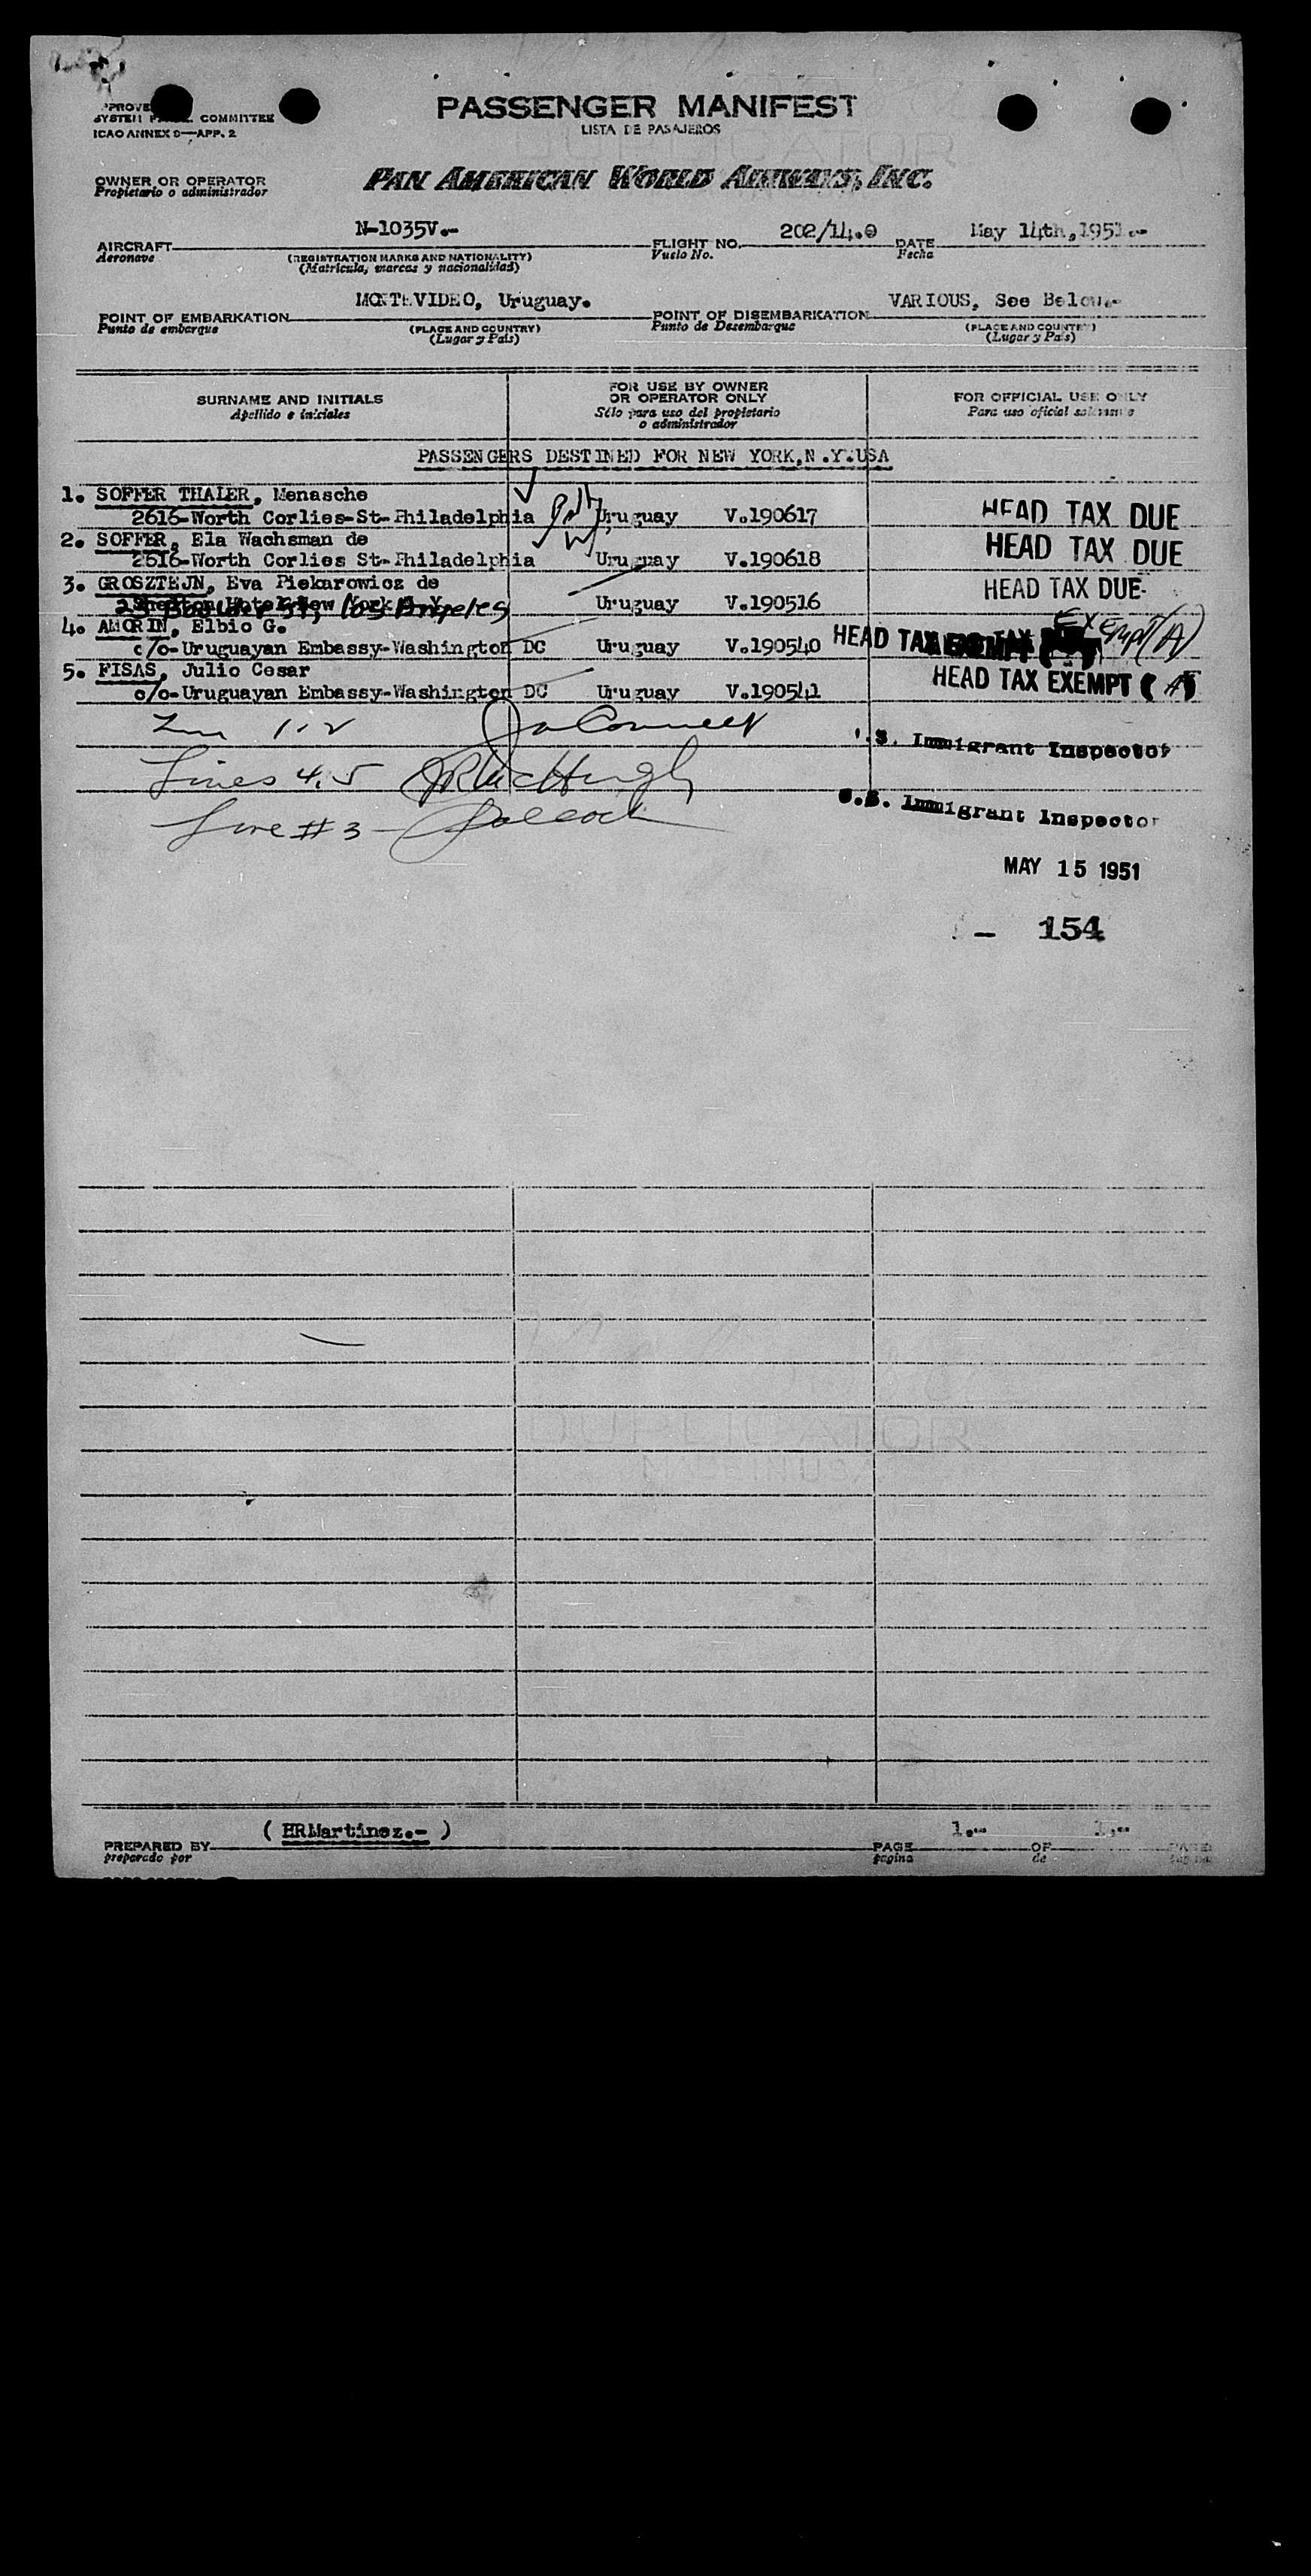 PASSENGER MANIFEST
LISTA DE PASAJEROS
SYSTEM COMMITTEE
ICAO ANNEX 9—APP. 2
OWNER OR OPERATOR
Propietario o administrador
PAN AMERICAN WORLD AIRWAYS, INC.
AIRCRAFT N-1035V.- FLIGHT NO. 202/14. DATE May 14th, 1951.-
Aeronave (REGISTRATION MARKS AND NATIONALITY) Vuelo No. Fecha
(Matricula, marcas y nacionalidad)
POINT OF EMBARKATION MONTEVIDEO, Uruguay. POINT OF DISEMBARKATION VARIOUS, See Below.-
Punto de embarque (PLACE AND COUNTRY) Punto de Desembarque (PLACE AND COUNTRY)
(Lugar y Pais) (Lugar y Pais)
SURNAME AND INITIALS FOR USE BY OWNER OR OPERATOR ONLY FOR OFFICIAL USE ONLY
Apellido e iniciales Sólo para uso del propietario o administrador Para uso oficial solamente
PASSENGERS DESTINED FOR NEW YORK,N.Y.USA
1. SOFFER THALER, Menasche
2616-Worth Corlies-St-Philadelphia Uruguay V.190617 HEAD TAX DUE
2. SOFFER, Ela Wachsman de HEAD TAX DUE
2616-Worth Corlies St-Philadelphia Uruguay V.190618
3. GROSZTEJN, Eva Piekarowicz de HEAD TAX DUE
St, Los Angeles Uruguay V.190516
4. AMORIN, Elbio G. HEAD TAX Exempt (A)
c/o-Uruguayan Embassy-Washington DC Uruguay V.190540
5. FISAS, Julio Cesar HEAD TAX EXEMPT (A)
c/o-Uruguayan Embassy-Washington DC Uruguay V.190541
1-2
U.S. Immigrant Inspector
Lines 4, 5 McHugh
U.S. Immigrant Inspector
Line #3 -
MAY 15 1951
- 154
PREPARED BY ( HRMartinez.- ) PAGE 1.- OF 1.- PAGES
preparado por pagina de